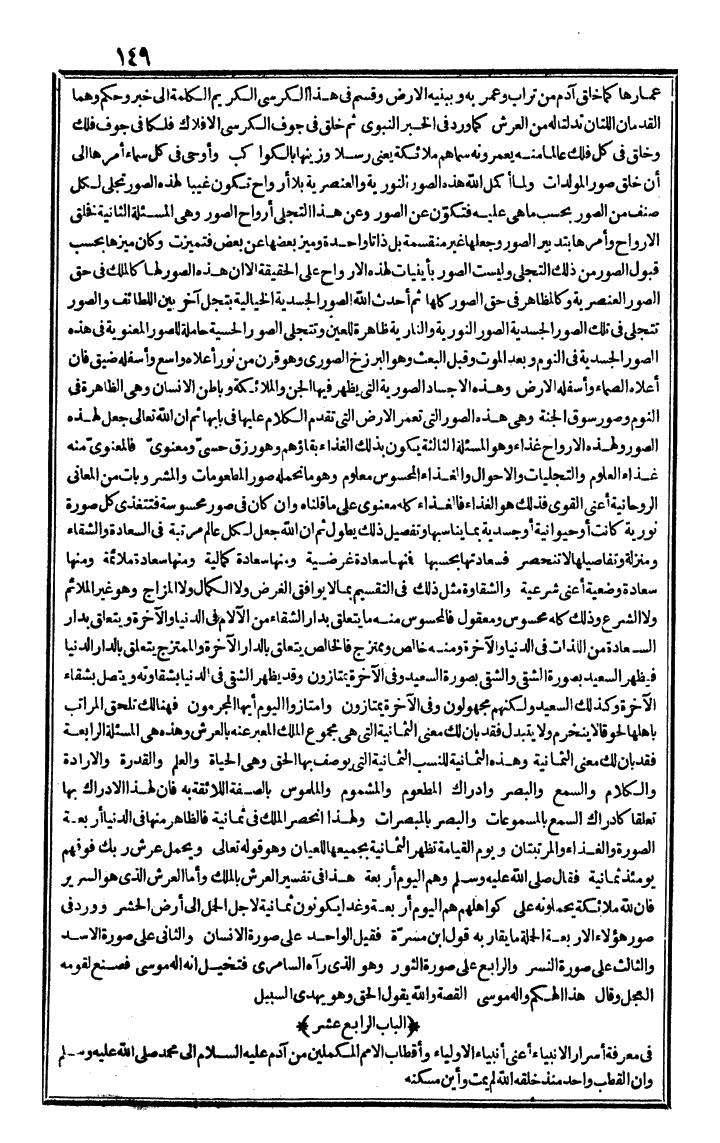 ١٤٩
عمارها كما خلق آدم من تراب وعمر به وببنيه الارض وقسم فى هذا الكرسى الكريم الكلمة الى خبر وحكم وهما
القدمان اللتان تدلتا له من العرش كما ورد فى الخبر النبوى ثم خلق فى جوف الكرسى الافلاك فلكا فى جوف فلك
وخلق فى كل فلك عالما منه يعمرونه سماهم ملائكة يعنى رسلا وزينها بالكواكب وأوحى فى كل سماء أمرها الى
أن خلق صور المولدات ولما أكمل الله هذه الصور النورية والعنصرية بلا أرواح تكون غيبا لهذه الصور تجلى لكل
صنف من الصور بحسب ما هى عليه فتكوّن عن الصور وعن هذا التجلى أرواح الصور وهى المسئلة الثانية فخلق
الارواح وأمرها بتدبير الصور وجعلها غير منقسمة بل ذاتا واحدة وميز بعضها عن بعض فتميزت وكان ميزها بحسب
قبول الصور من ذلك التجلى وليست الصور بأينيات لهذه الارواح على الحقيقة الا ان هذه الصور لها كالملك فى حق
الصور العنصرية وكالمظاهر فى حق الصور كلها ثم أحدث الله الصور الجسدية الخيالية بتجل آخر بين اللطائف والصور
تتجلى فى تلك الصور الجسدية الصور النورية والنارية ظاهرة للعين وتتجلى الصور الحسية حاملة للصور المعنوية فى هذه
الصور الجسدية فى النوم وبعد الموت وقبل البعث وهو البرزخ الصورى وهو قرن من نور أعلاه واسع وأسفله ضيق فان
أعلاه العماء وأسفله الارض وهذه الاجساد الصورية التى يظهر فيها الجن والملائكة وباطن الانسان وهى الظاهرة فى
النوم وصور سوق الجنة وهى هذه الصور التى تعمر الارض التى تقدم الكلام عليها فى بابها ثم ان الله تعالى جعل لهذه
الصور ولهذه الارواح غذاء وهو المسئلة الثالثة يكون بذلك الغذاء بقاؤهم وهو رزق حسىّ ومعنوىّ فالمعنوىّ منه
غذاء العلوم والتجليات والاحوال والغذاء المحسوس معلوم وهو ما تحمله صور المطعومات والمشروبات من المعانى
الروحانية أعنى القوى فذلك هو الغذاء فالغذاء كله معنوى على ما قلناه وان كان فى صور محسوسة فتتغذى كل صورة
نورية كانت أو حيوانية أو جسدية بما يناسبها وتفصيل ذلك يطول ثم ان الله جعل لكل عالم مرتبة فى السعادة والشقاء
ومنزلة وتفاصيلها لا تنحصر فسعادتها بحسبها فمنها سعادة غرضية ومنها سعادة كمالية ومنها سعادة ملائمة ومنها
سعادة وضعية أعنى شرعية والشقاوة مثل ذلك فى التقسيم بما لا يوافق الغرض ولا الكمال ولا المزاج وهو غير الملائم
ولا الشرع وذلك كله محسوس ومعقول فالمحسوس منه ما يتعلق بدار الشقاء من الآلام فى الدنيا والآخرة ويتعلق بدار
السعادة من اللذات فى الدنيا والآخرة ومنه خالص وممتزج فالخالص يتعلق بالدار الآخرة والممتزج يتعلق بالدار الدنيا
فيظهر السعيد بصورة الشقى والشقى بصورة السعيد وفى الآخرة يمتازون وقد يظهر الشقى فى الدنيا بشقاوته ويتصل بشقاء
الآخرة وكذلك السعيد ولكنهم مجهولون وفى الآخرة يمتازون وامتازوا اليوم أيها المجرمون فهنالك تلحق المراتب
بأهلها لحوقا لا ينخرم ولا يتبدل فقد بان لك معنى الثمانية التى هى مجموع الملك المعبر عنه بالعرش وهذه هى المسئلة الرابعة
فقد بان لك معنى الثمانية وهذه الثمانية للنسب الثمانية التى يوصف بها الحق وهى الحياة والعلم والقدرة والارادة
والكلام والسمع والبصر وادراك المطعوم والمشموم والملموس بالصفة اللائقة به فان لهذا الادراك بها
تعلقا كادراك السمع بالمسموعات والبصر بالمبصرات ولهذا انحصر الملك فى ثمانية فالظاهر منها فى الدنيا أربعة
الصورة والغذاء والمرتبتان ويوم القيامة تظهر الثمانية بجميعها للعيان وهو قوله تعالى ويحمل عرش ربك فوقهم
يومئذ ثمانية فقال صلى الله عليه وسلم وهم اليوم أربعة هذا فى تفسير العرش بالملك وأما العرش الذى هو السرير
فان لله ملائكة يحملونه على كواهلهم هم اليوم أربعة وغدا يكونون ثمانية لاجل الحمل الى أرض الحشر وورد فى
صور هؤلاء الاربعة الحملة ما يقاربه قول ابن مسرّة فقيل الواحد على صورة الانسان والثانى على صورة الاسد
والثالث على صورة النسر والرابع على صورة الثور وهو الذى رآه السامرى فتخيل انه اله موسى فصنع لقومه
العجل وقال هذا الهكم واله موسى القصة والله يقول الحق وهو يهدى السبيل
﴿الباب الرابع عشر﴾
فى معرفة أسرار الانبياء أعنى أنبياء الاولياء وأقطاب الامم المكملين من آدم عليه السلام الى محمد صلى الله عليه وسلم
وان القطب واحد منذ خلقه الله لم يمت وأين مسكنه